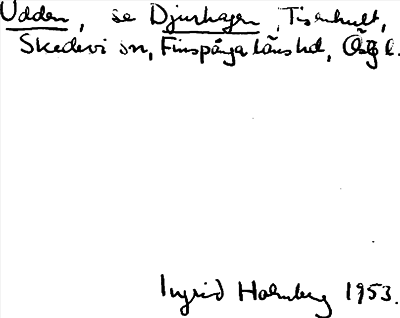 Udden, se Djurhagen, Tisenhult,
Skedevi sn, Finspånga läns hd, Östg l.
Ingrid Holmberg 1953.